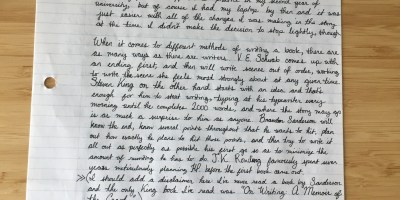 university, but of course I had my laptop by then and it was
just easier with all of the changes I was making in the story
at the time. I didn't make the decision to stop lightly, though.
When it comes to different methods of writing a book, there are
as many ways as there are writers. V.E. Schwab comes up with
an ending first, and then will write scenes out of order, working
to write the scene she feels most strongly about at any given time.
Steven King on the other hand starts with an idea and that's
enough for him to start writing, typing at his typewriter every
morning until he completes 2000 words, and where the story may go
is as much a surprise to him as anyone. Brandon Sanderson will
know the end, know several points throughout that he wants to hit, plan
out how exactly he plans to hit those points, and then try to write it
all out as perfectly as possible his first go so as to minimise the
amount of rewriting he has to do. J.K. Rowling famously spent
years meticulously planning HP before the first book came out.
I should add a disclaimer here I've never read a book by Sanderson
and the only King book I've read was "On Writing: A Memoir of